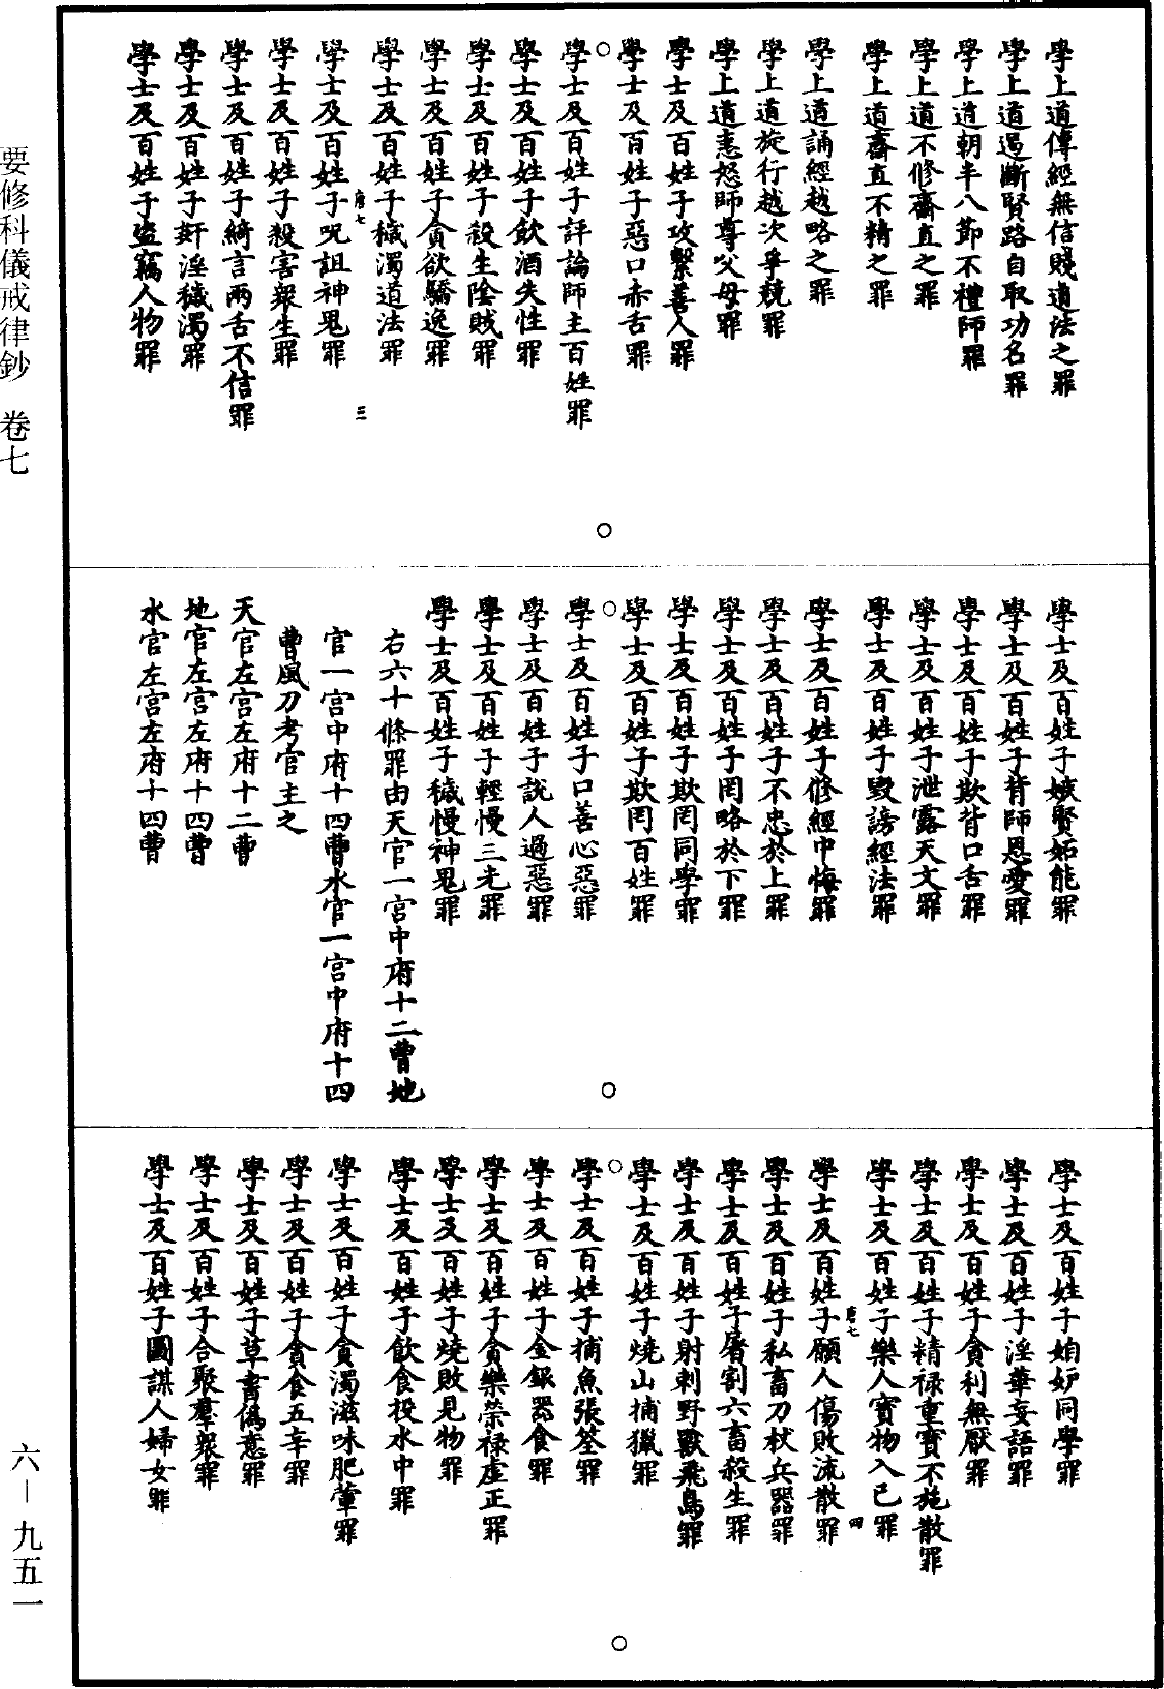 學上道傳經無信賤道法之罪
學上道遏斷賢路自取功名罪
學上道朝半八節不禮師罪
學上道不修齋直之罪
學上道齋直不精之罪
學上道誦經越略之罪
學上道旋行越次爭競罪
學上道恚怒師尊父母罪
學士及百姓子攻擊善人罪
學士及百姓子惡口赤舌罪
○
學士及百姓子評論師主百姓罪
學士及百姓子飲酒失性罪
學士及百姓子殺生陰賊罪
學士及百姓子貪欲驕逸罪
學士及百姓子穢濁道法罪
唐七 三
學士及百姓子呪詛神鬼罪
學士及百姓子殺害衆生罪
學士及百姓子綺言兩舌不信罪
學士及百姓子奸淫穢濁罪
學士及百姓子盜竊人物罪
○
學士及百姓子嫉賢妬能罪
學士及百姓子背師恩愛罪
學士及百姓子欺背口舌罪
學士及百姓子泄露天文罪
學士及百姓子毀謗經法罪
學士及百姓子修經中悔罪
學士及百姓子不忠於上罪
學士及百姓子罔略於下罪
學士及百姓子欺罔同學罪
學士及百姓子欺罔百姓罪
○
學士及百姓子口善心惡罪
學士及百姓子說人過惡罪
學士及百姓子輕慢三光罪
學士及百姓子穢慢神鬼罪
右六十條罪由天官一宮中府十二曹地
官一宮中府十四曹水官一宮中府十四
曹風刀考官主之
天官左宮左府十二曹
地官左宮左府十四曹
水官左宮左府十四曹
○
學士及百姓子姻妒同學罪
學士及百姓子淫華妄語罪
學士及百姓子貪利無厭罪
學士及百姓子精祿重寶不施散罪
學士及百姓子樂人寶物入己罪
學士及百姓子願人傷敗流散罪
唐七 四
學士及百姓子私畜刀杖兵器罪
學士及百姓子屠割六畜殺生罪
學士及百姓子射刺野獸飛鳥罪
學士及百姓子燒山捕獵罪
○
學士及百姓子捕魚張筌罪
學士及百姓子金銀器食罪
學士及百姓子貪樂榮祿虛正罪
學士及百姓子燒敗見物罪
學士及百姓子飲食投水中罪
學士及百姓子貪濁滋味肥葷罪
學士及百姓子貪食五辛罪
學士及百姓子草書偽意罪
學士及百姓子合聚羣衆罪
學士及百姓子圖謀人婦女罪
○
要修科儀戒律鈔 卷七
六—九五一